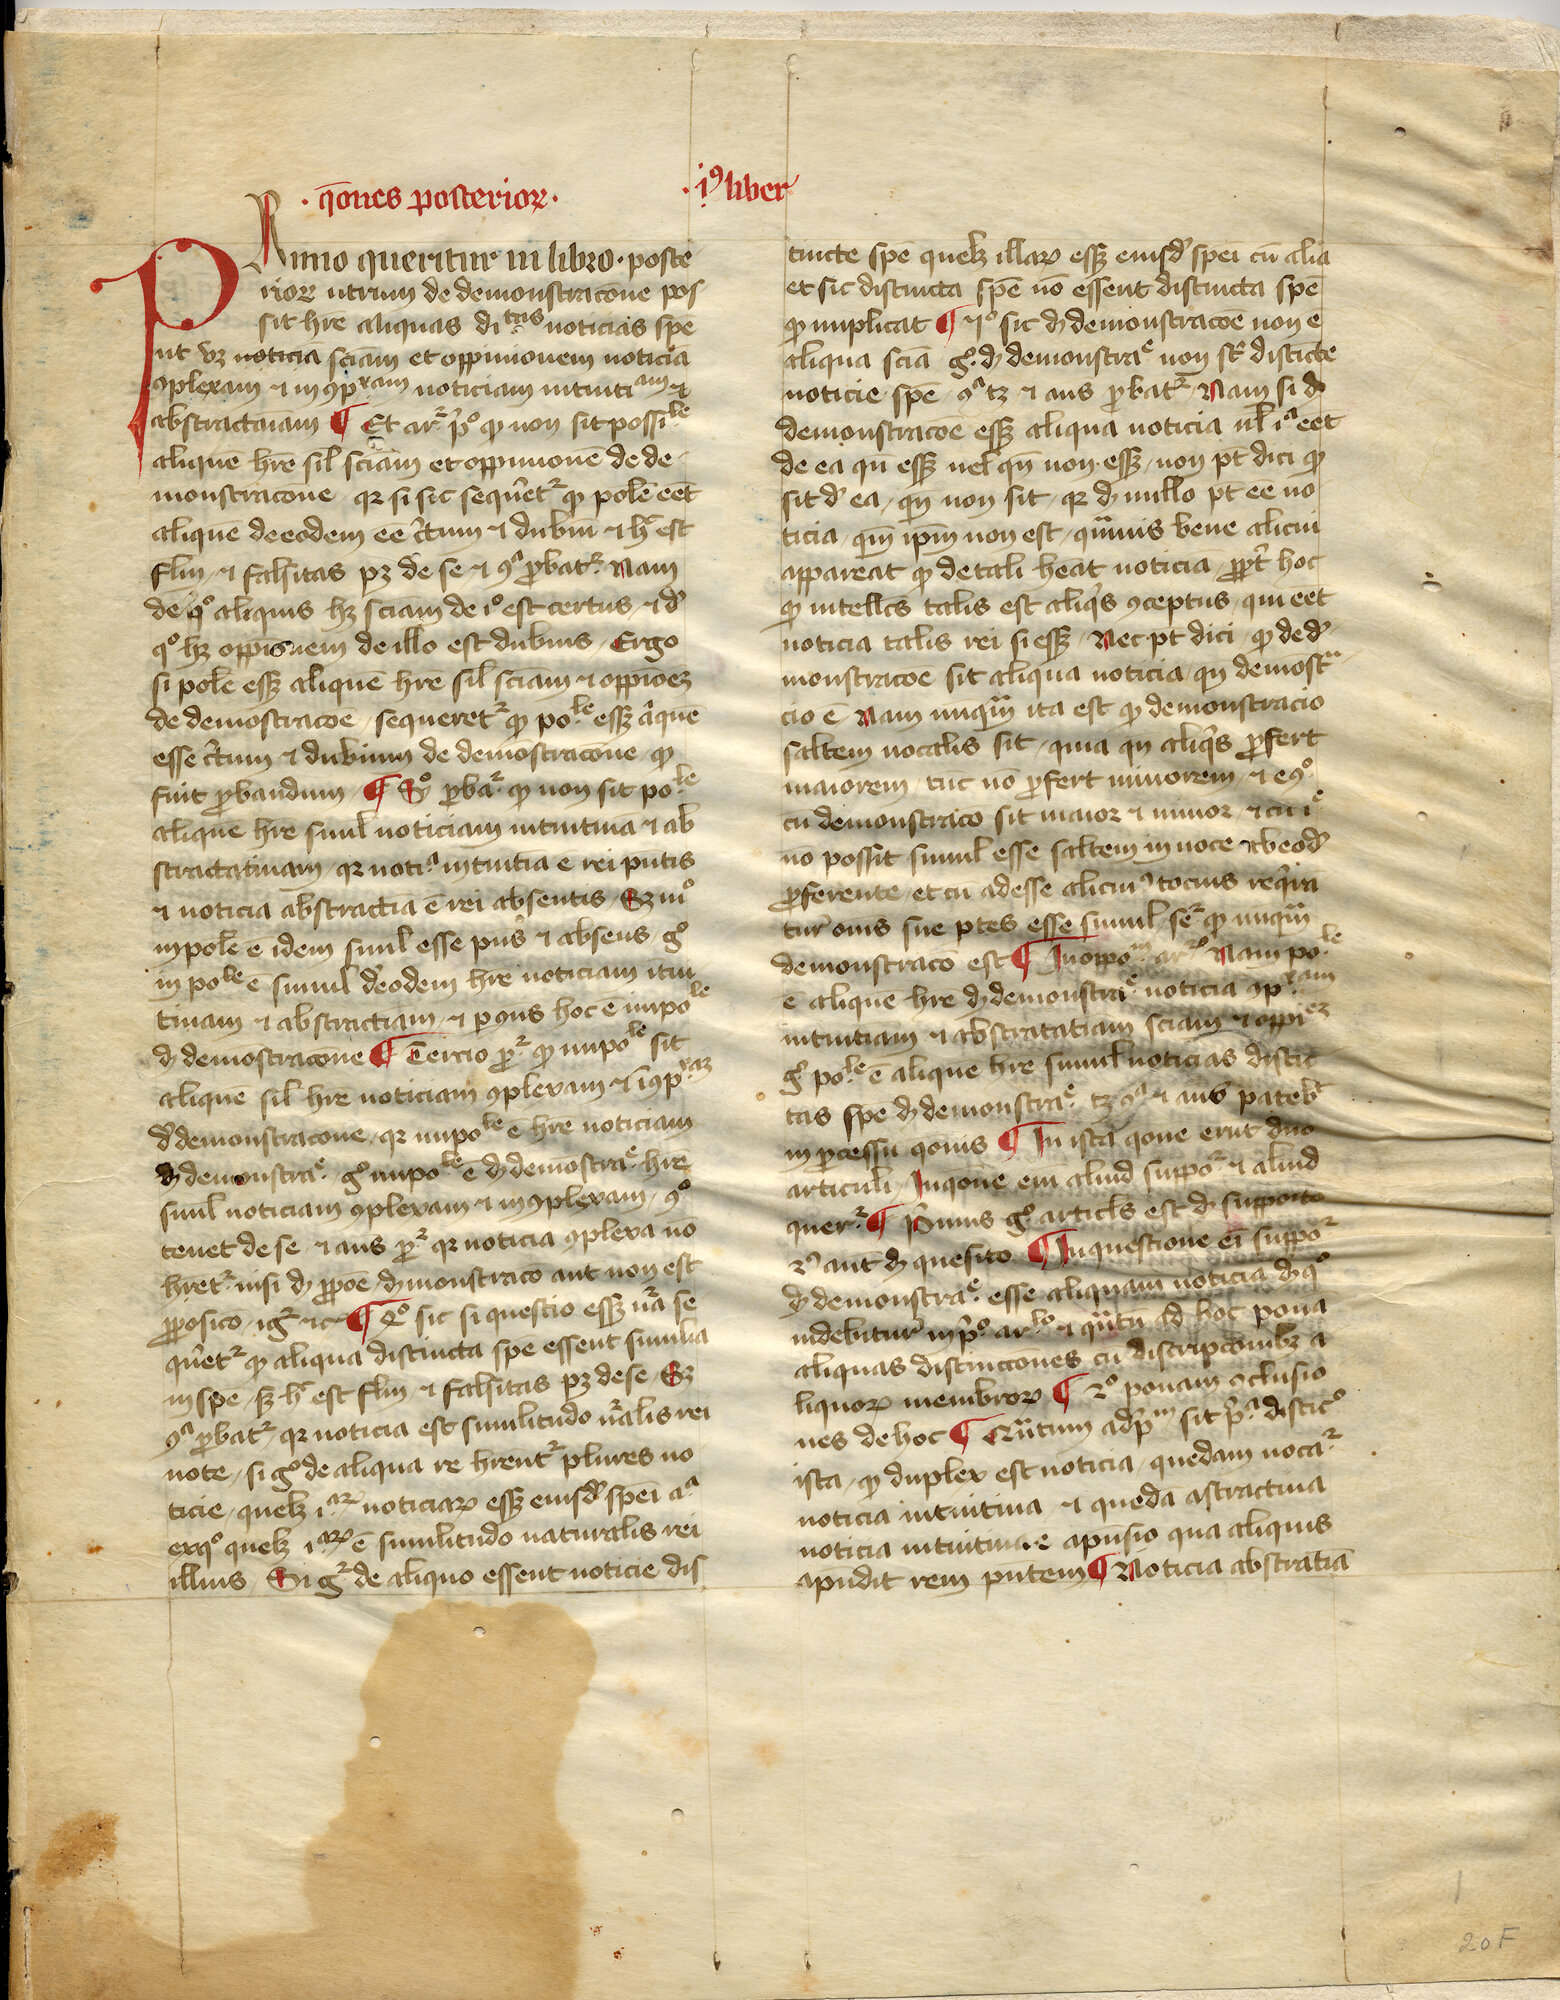 · q̄ones posterior̄ꝝ · · i9 liber
Primo queritur in libro · poste
rioꝝ utrum de demonstracōne pos
sit hr̄e aliquas di tas noticias spē
ut vꝫ noticia sciam et oppinionem noticiā
ꝯplexam ⁊ inꝯpxam noticiam intuitiam ⁊
abstractiuam ¶ Et arr p̄o qꝫ non sit possile
aliquē hr̄e sil̄ sciam et oppinionē de de
monstracone qꝛ si sic sequēt qꝫ polē eēt
aliquē de eodem eē c̄tum ⁊ dubiū ⁊ h est
flm ⁊ falsitas pꝫ de se ⁊ ꝯa ꝓbatr Nam
de qo aliquis hꝫ sciam de io est certus ⁊ d̄
qo hꝫ oppioēnem de illo est dubius Ergo
si polē essꝫ aliquē hr̄e sil̄ sciam ⁊ oppioēꝫ
de demostracoē sequeretr qꝫ po.le essꝫ aliquē
esse c̄tum ⁊ dubium de demostracōne qꝫ
fuit ꝓbandum ¶ So ꝓbar qꝫ non sit po.le
aliquē hr̄e simul noticiam intuitiuā ⁊ ab
stractatiuam qꝛ notia intuitiā ē rei pn̄tis
⁊ noticia abstractiā ē rei absentis Sꝫ mo
inpolē ē idem simul esse pn̄s ⁊ absens go
inpole ē simul d̄eodem hr̄e noticiam itui
tiuam ⁊ abstractiam ⁊ ꝑꝯns hoc ē impole
d̄ demostracōne ¶ Tercio pr qꝫ impole sit
aliquē sil̄ hr̄e noticiam ꝯplexam ⁊ iꝯpxaꝫ
d̄ demonstracone qꝛ impole ē hr̄e noticiam
d̄ demonstrae go impole ē d̄ demostrae hr̄e
simul noticiam ꝯplexam ⁊ inꝯplexam ꝯa
tenet de se ⁊ ans pr qꝛ noticia ꝯplexa nō
hretr nisi d̄ ꝓpoē d̄monstraco aut non est
ꝓposico igr ⁊c ¶ Qo sic si questio essꝫ ua se
quēt qꝫ aliqua distincta spē essent similia
in spē sꝫ h est flm ⁊ falsitas pꝫ de se Sꝫ
ꝯa ꝓbatr qꝛ noticia est similitudo nālis rei
note si go de aliqua re hrentr plures no
ticie quelꝫ iaꝝ noticiaꝝ essꝫ eiusd̄ spei aa
exqo quelꝫ iaꝝ ē similitudo naturalis rei
illius Si gr de aliquo essent noticie dis
tincte spē quelꝫ illaꝝ essꝫ eiusd̄ spei cū alia
et sic distincta spē nō essent distincta spē
qꝫ implicat ¶ Io sic d̄ demonstracoe non ē
aliqua sciā go d̄ demonstrae non sr̄ distīcte
noticie spē ꝯa tꝫ ⁊ ans ꝓbatr Nam si d̄
demonstracoē essꝫ aliqua noticia ul̄ ia eēt
de ea qn̄ essꝫ uel qn̄ non essꝫ non pt dici qꝫ
sit d̄ ea qn̄ non sit qꝛ d̄ nullo pt eē no
ticia qn̄ ip̄m non est quāuis bene alicui
appareat qꝫ de tali heāt noticiā ꝓpt̄ hoc
qꝫ intellcs talis est aliqis ꝯceptus qui eēt
noticia talis rei si essꝫ Nec pt dici qꝫ de d̄
monstracoē sit aliqua noticia qn̄ demostra
cio ē Nam nunqm̄ ita est qꝫ demonstracio
saltem uocalis sit quia qn̄ aliqis ꝓfert
maiorem tūc nō ꝓfert minorem ⁊ eꝯo
cū demonstraco sit maior ⁊ minor ⁊ cū ie
nō possit simul esse saltem in uoce ab eod̄
ꝓferente et cū ad esse alicui9 tocius reqīra
tur om̄s sue ptes esse simul ser qꝫ nunqm̄
demonstracō est ¶ In oppom ar Nam po.le
ē aliquē hr̄e d̄ demonstrae noticiā ꝯpxam
intuitiam ⁊ abstratatiam sciam ⁊ oppieꝫ
go po.le ē aliquē hr̄e simul noticias distīc
tas spē d̄ demonstrae tꝫ ꝯa ⁊ ans patebt
in ꝓcessu qonis ¶ In ista qone erūt duo
articuli In qone eni aliud suppor ⁊ aliud
querr ¶ Primus go articls est d̄ supposito
2o aut d̄ quesito ¶ In questione ei suppor
d̄ demonstrae esse aliquam noticiā d̄ qo
uidebitur in po arlo ⁊ qutū ad hoc ponā
aliquas distincciones cū discripcionibꝫ a
liquoꝝ membroꝝ ¶ 2o ponam ꝯclusio
nes de hoc ¶ Qutum ad pm sit pa distico
ista qꝫ duplex est noticia quedam uocar
noticia intuitiua ⁊ quedā astractiua
noticia intuitiua ē apn̄sio qua aliquis
apn̄dit rem pn̄tem ¶ Noticia abstratiā
20F